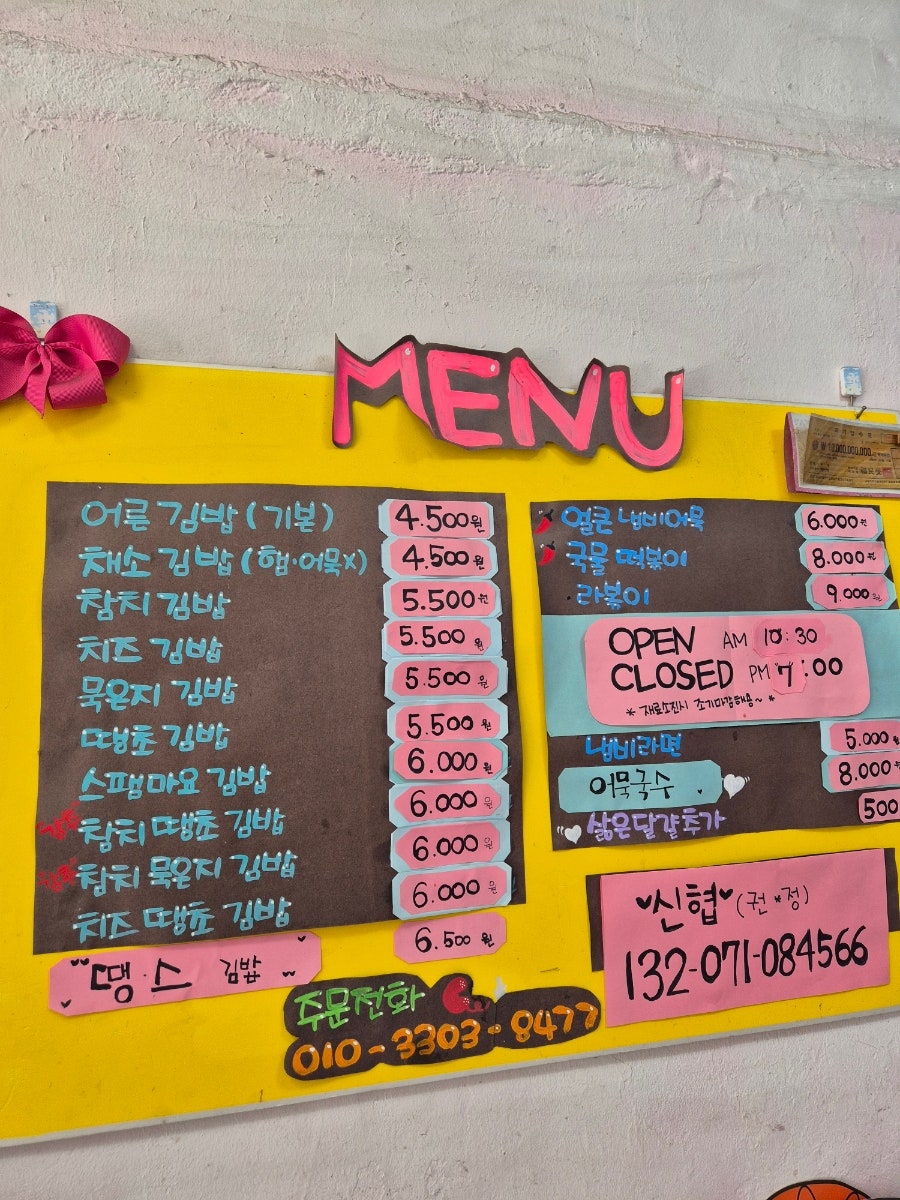 MENU
어른 김밥 (기본) 4.500원
채소 김밥 (햄·어묵X) 4.500원
참치 김밥 5.500원
치즈 김밥 5.500원
묵은지 김밥 5.500원
땡초 김밥 5.500원
스팸마요 김밥 6.000원
참치 땡초 김밥 6.000원
참치 묵은지 김밥 6.000원
치즈 땡초 김밥 6.000원
땡·스 김밥 6.500원
주문전화
010-3303-8477
10,000,000,000
얼큰 냄비어묵 6.000원
국물 떡볶이 8.000원
라볶이 9.000원
OPEN AM 10:30
CLOSED PM 7:00
* 재료소진시 조기마감해용~ *
냄비라면 5.000원
어묵국수 8.000
삶은달걀추가 500
신협 (권*정)
132-071-084566